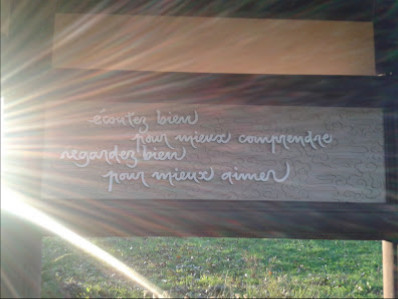 écoutez bien
pour mieux comprendre
regardez bien
pour mieux aimer